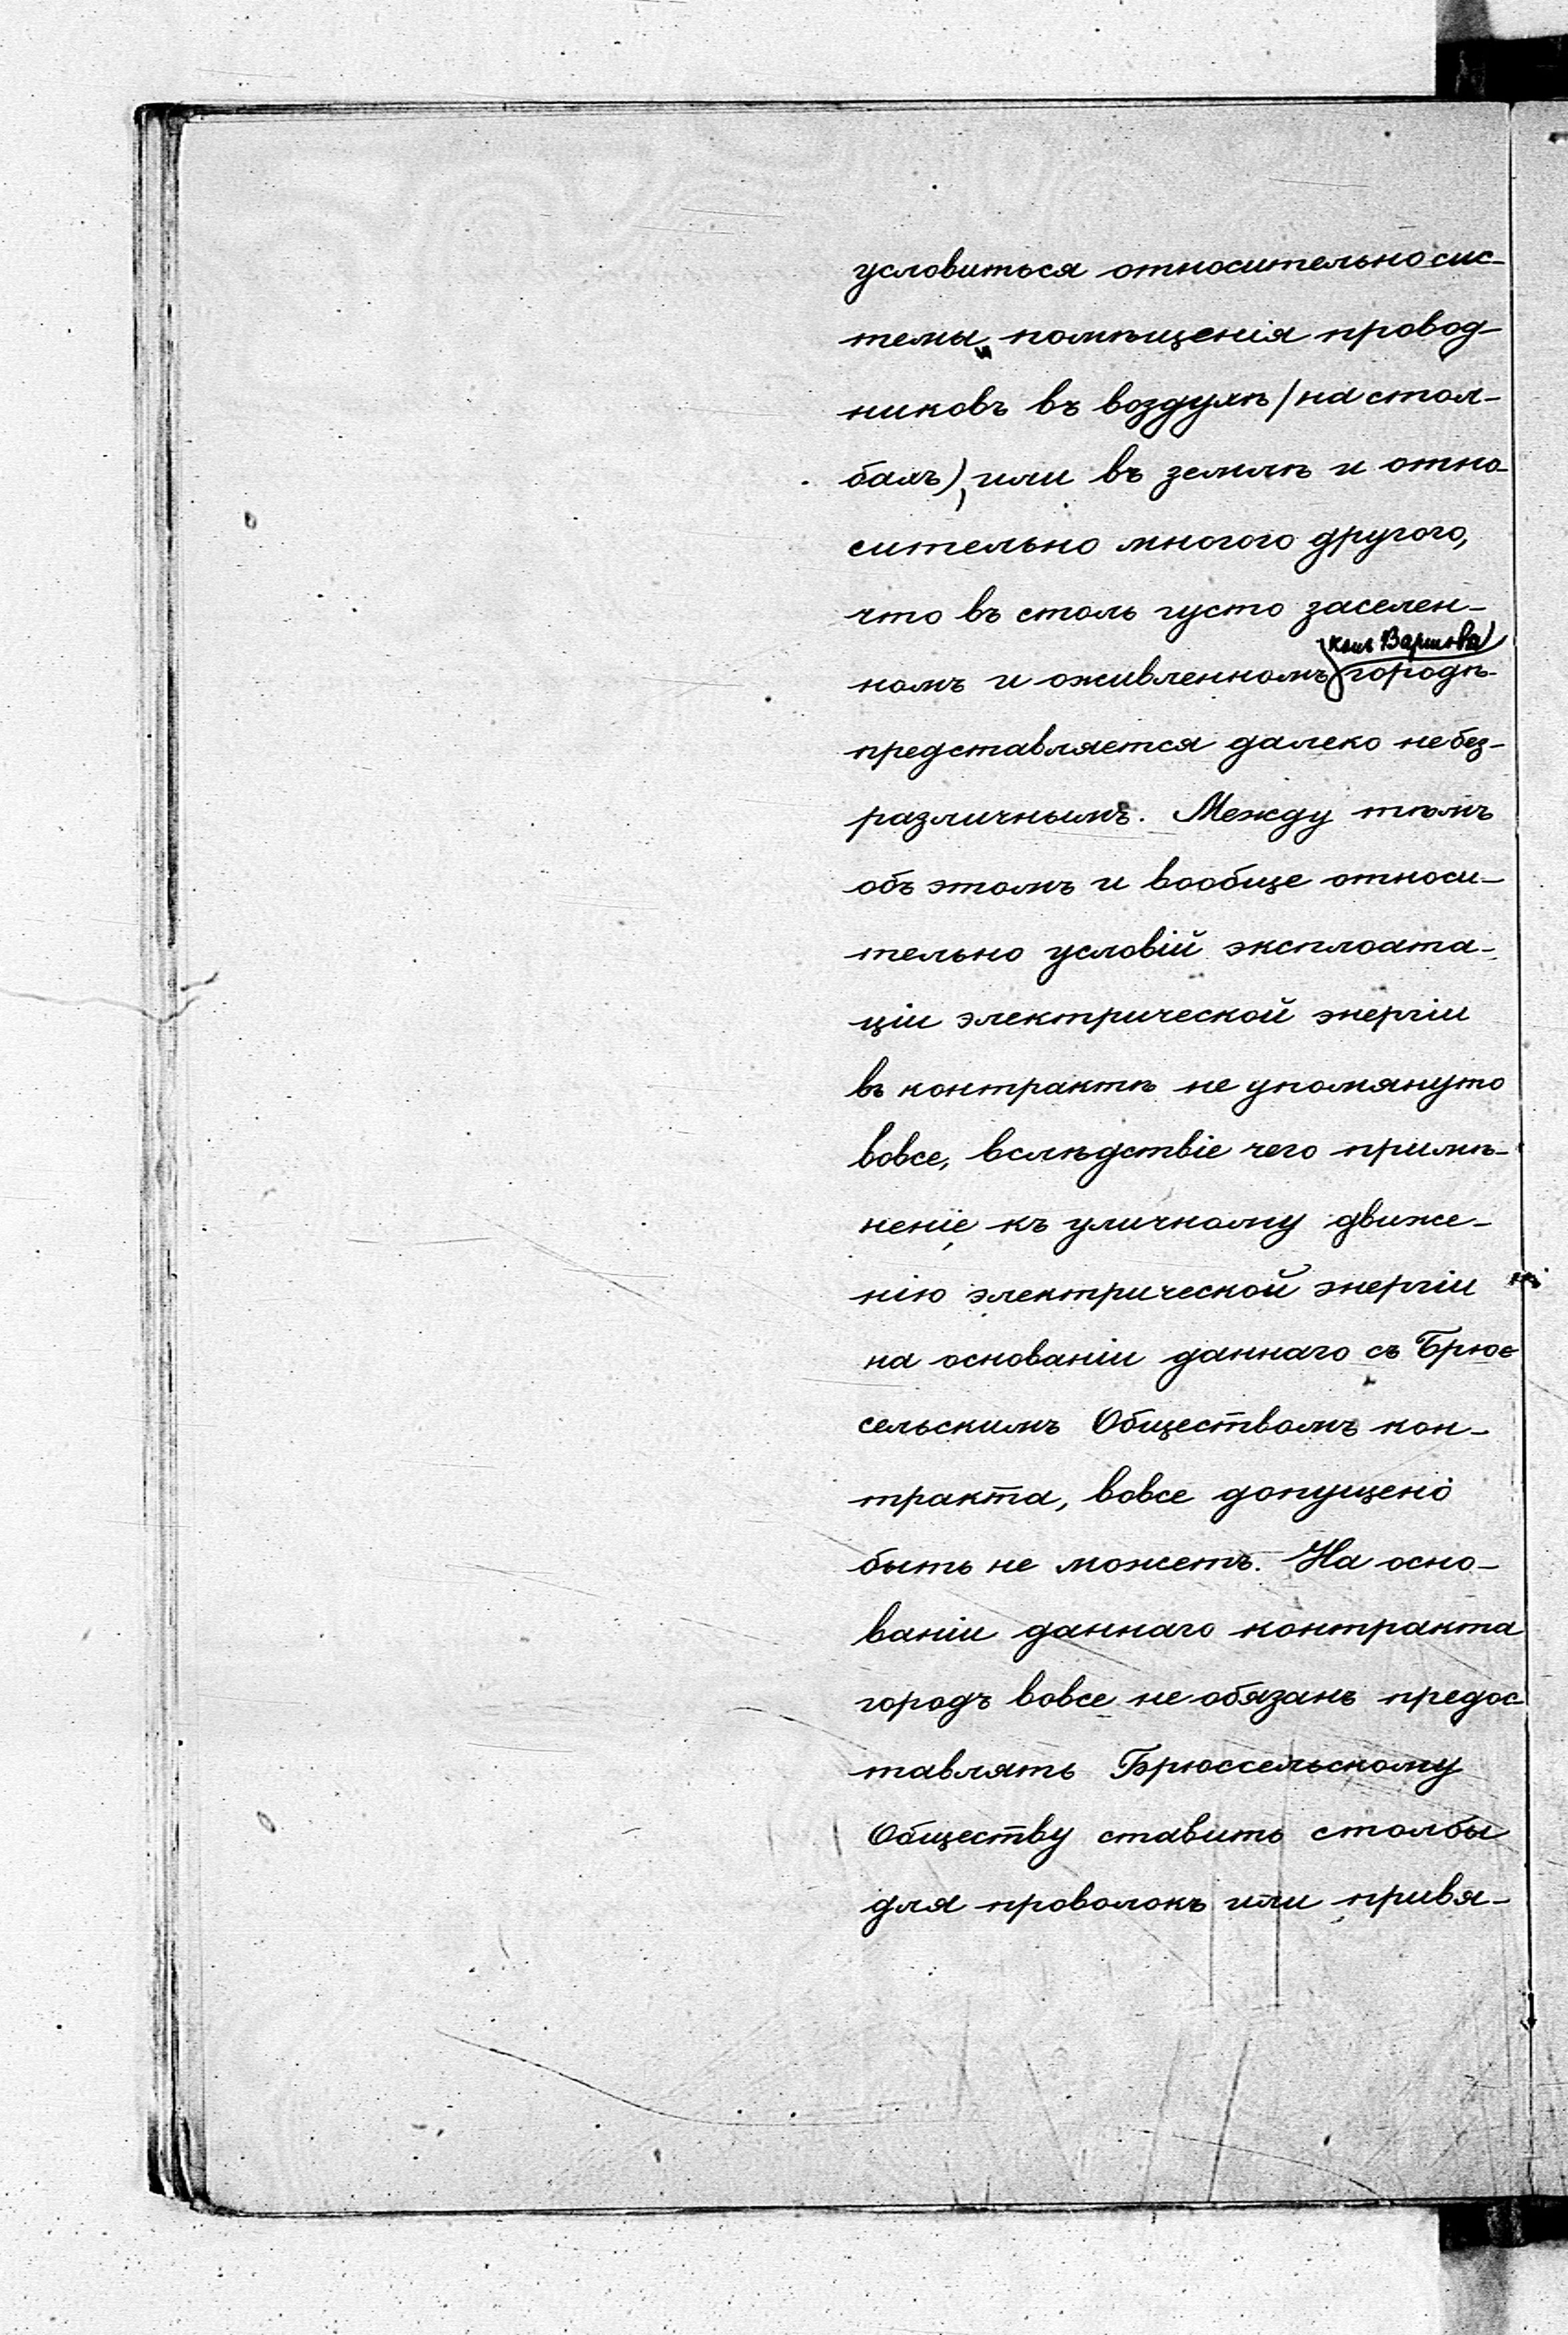 условиться относительно сис-
темы и помѣщенія провод-
никовъ въ воздухѣ (на стол-
бахъ), или въ землѣ и отно-
сительно многого другого,
что въ столь густо заселен-
какъ Варшава
номъ и оживленномъ городѣ
представляется далеко небез-
различнымъ. Между тѣмъ
объ этомъ и вообще относи-
тельно условій эксплоата-
ціи электрической энергіи
въ контрактѣ не упомянуто
вовсе, вслѣдствіе чего примѣ-
неніе къ уличному движе-
нію электрической энергіи
на основаніи даннаго съ Брюс-
сельскимъ Обществомъ кон-
тракта, вовсе допущено
быть не можетъ. На осно-
ваніи даннаго контракта
городъ вовсе не обязанъ предос
тавлять Брюссельскому
Обществу ставить столбы
для проволокъ или привя-